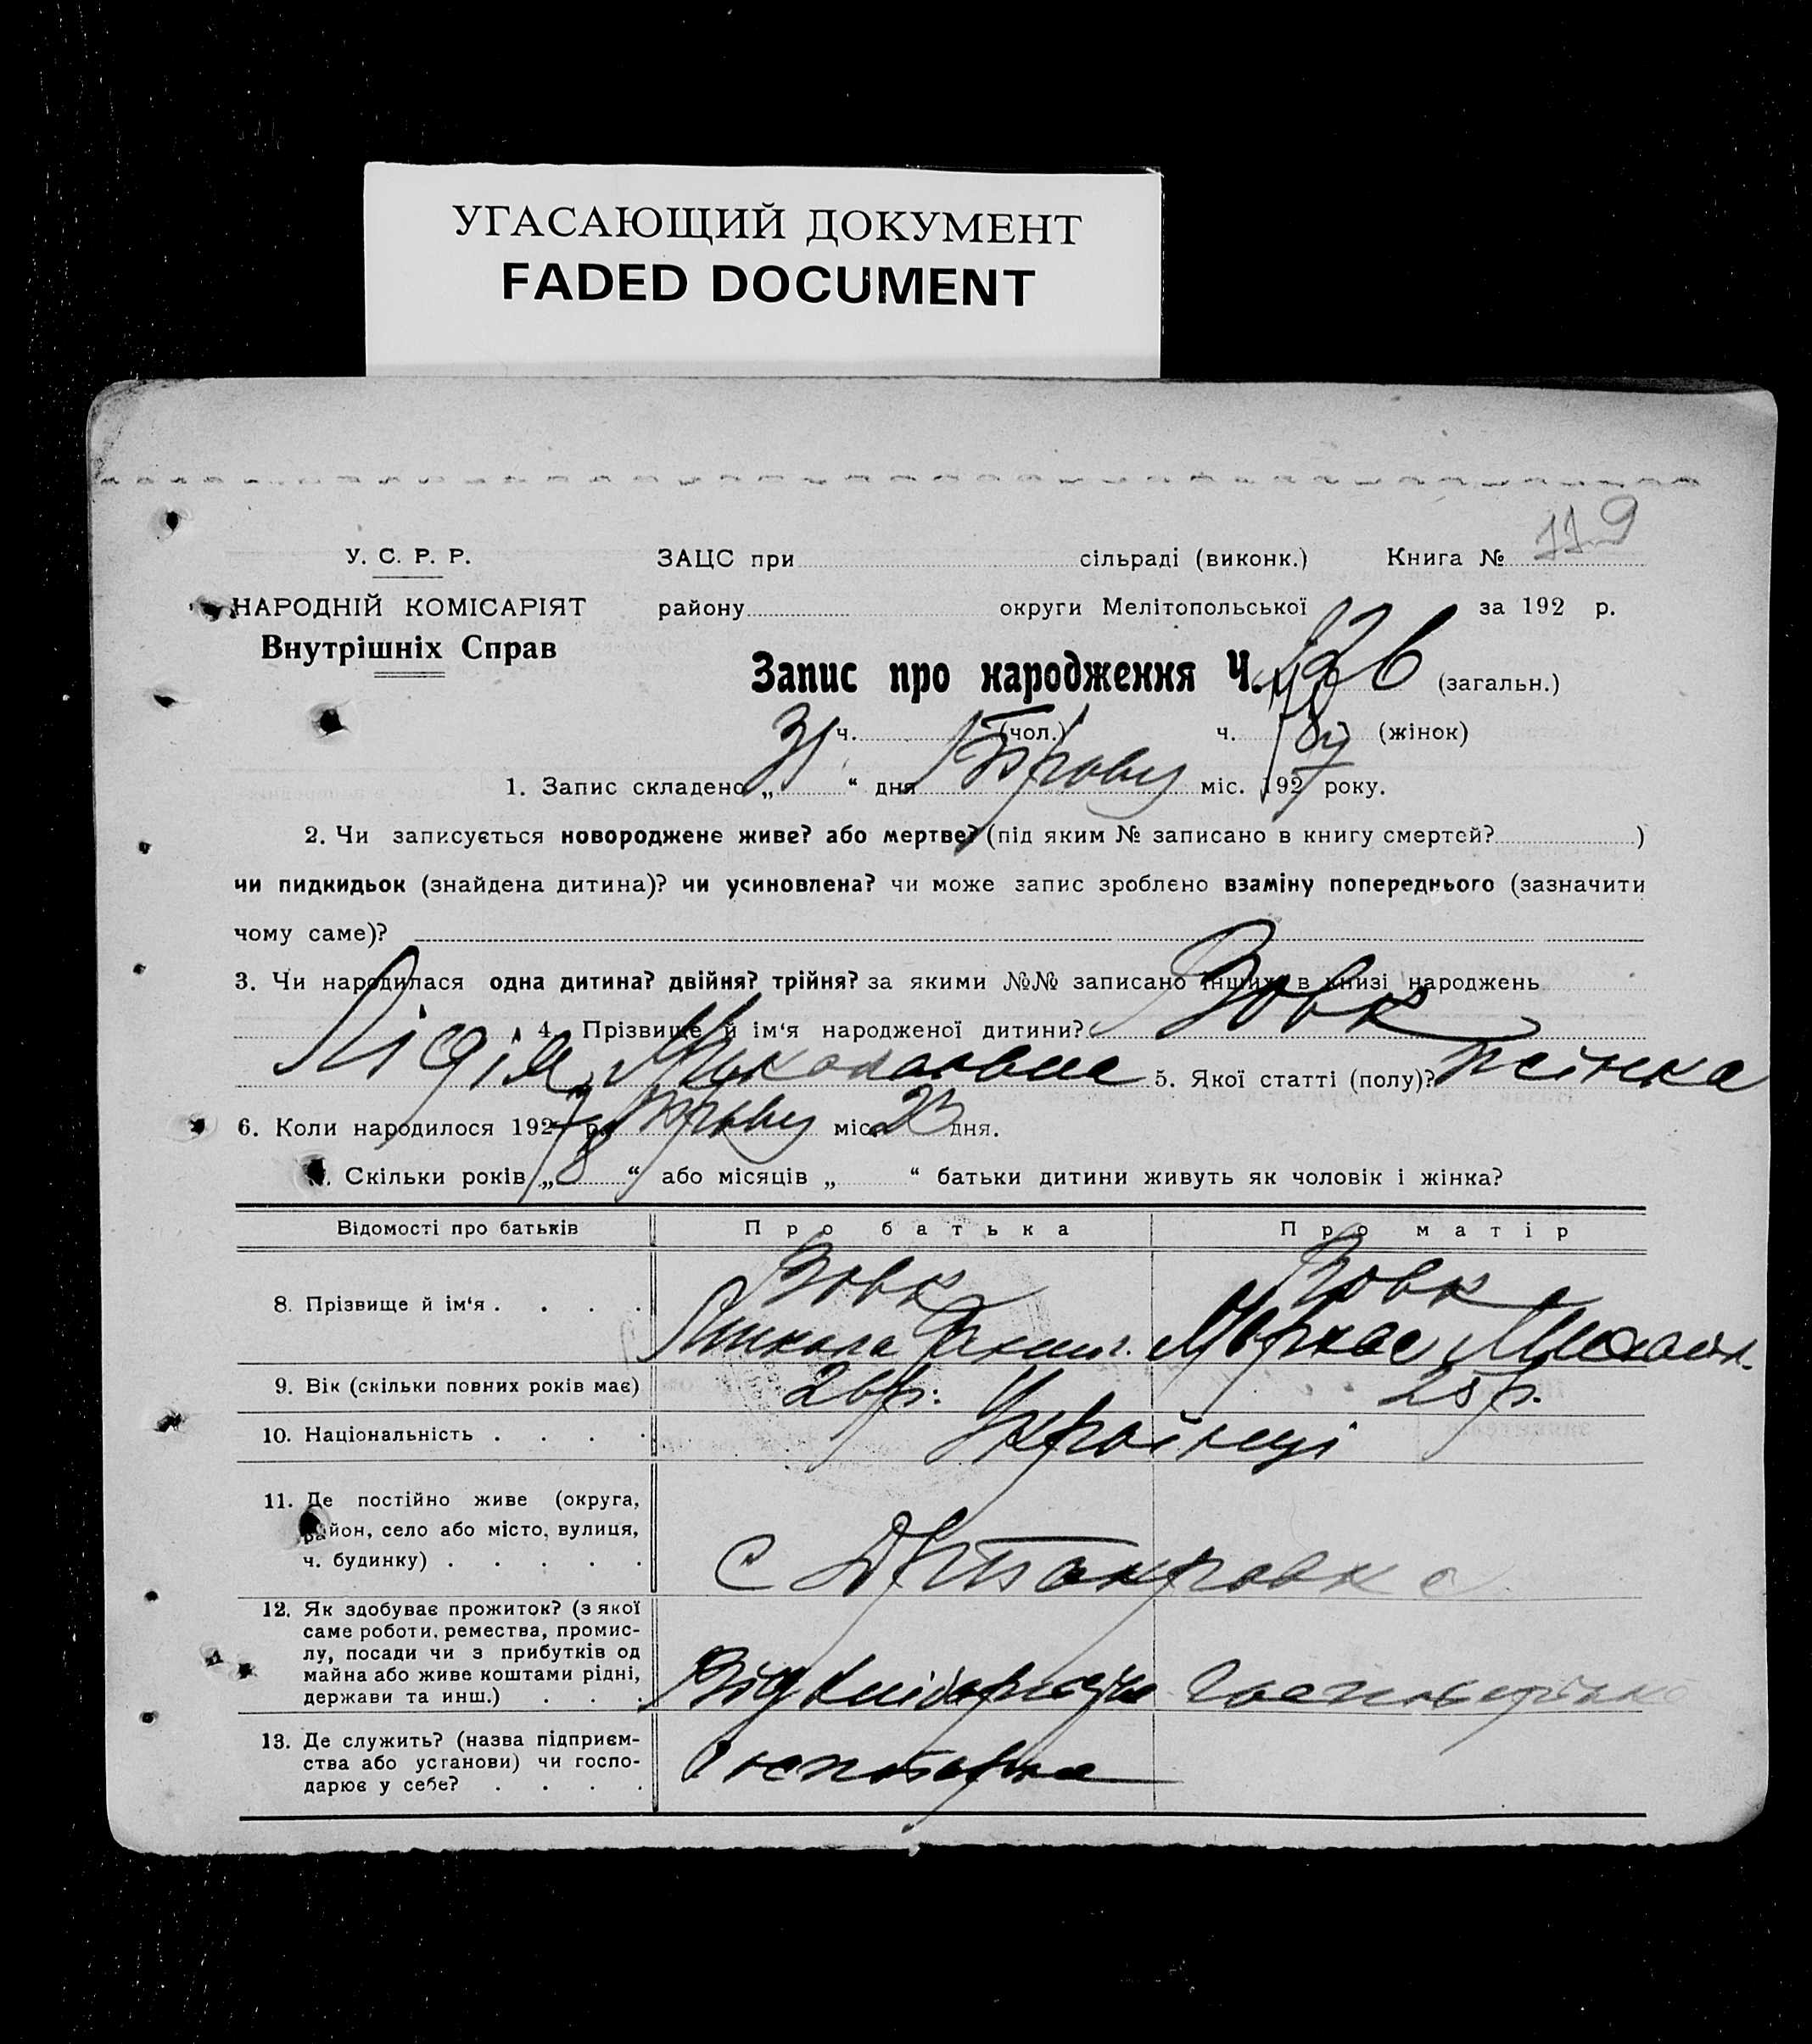 УГАСАЮЩИЙ ДОКУМЕНТ
FADED DOCUMENT
119
У. С. Р. Р. ЗАЦС при сільраді (виконк.) Книга №
НАРОДНІЙ КОМІСАРІЯТ району округи Мелітопольської за 192 р.
Внутрішніх Справ
Запис про народження Ч. (загальн.)
ч. (чол.) ч. (жінок)
1. Запис складено „ 31 “ дня міс. 1927 року.
2. Чи записується новороджене живе? або мертве? (під яким № записано в книгу смертей? )
чи пидкидьок (знайдена дитина)? чи усиновлена? чи може запис зроблено взаміну попереднього (зазначити
чому саме)?
3. Чи народилася одна дитина? двійня? трійня? за якими №№ записано інших в книзі народжень
4. Прізвище й ім‘я народженої дитини? Вовк
Лідія Миколаовна 5. Якої статті (полу)? жінка
6. Коли народилося 1927 р. міс. 23 дня.
7. Скільки років „ 8 “ або місяців „ “ батьки дитини живуть як чоловік і жінка?
Відомості про батьків Про батька Про матір
Вовк Вовк
8. Прізвище й ім‘я . . . . Микола Марія
9. Вік (скільки повних років має) 26 р. 25 р.
10. Національність . . . . Українці
11. Де постійно живе (округа,
район, село або місто, вулиця,
ч. будинку) . . . . . с
12. Як здобуває прожиток? (з якої
саме роботи, ремества, промис-
лу, посади чи з прибутків од
майна або живе коштами рідні,
держави та инш.) . . . Від хліборобства
13. Де служить? (назва підприєм-
ства або установи) чи госпо-
дарює у себе? . . . .